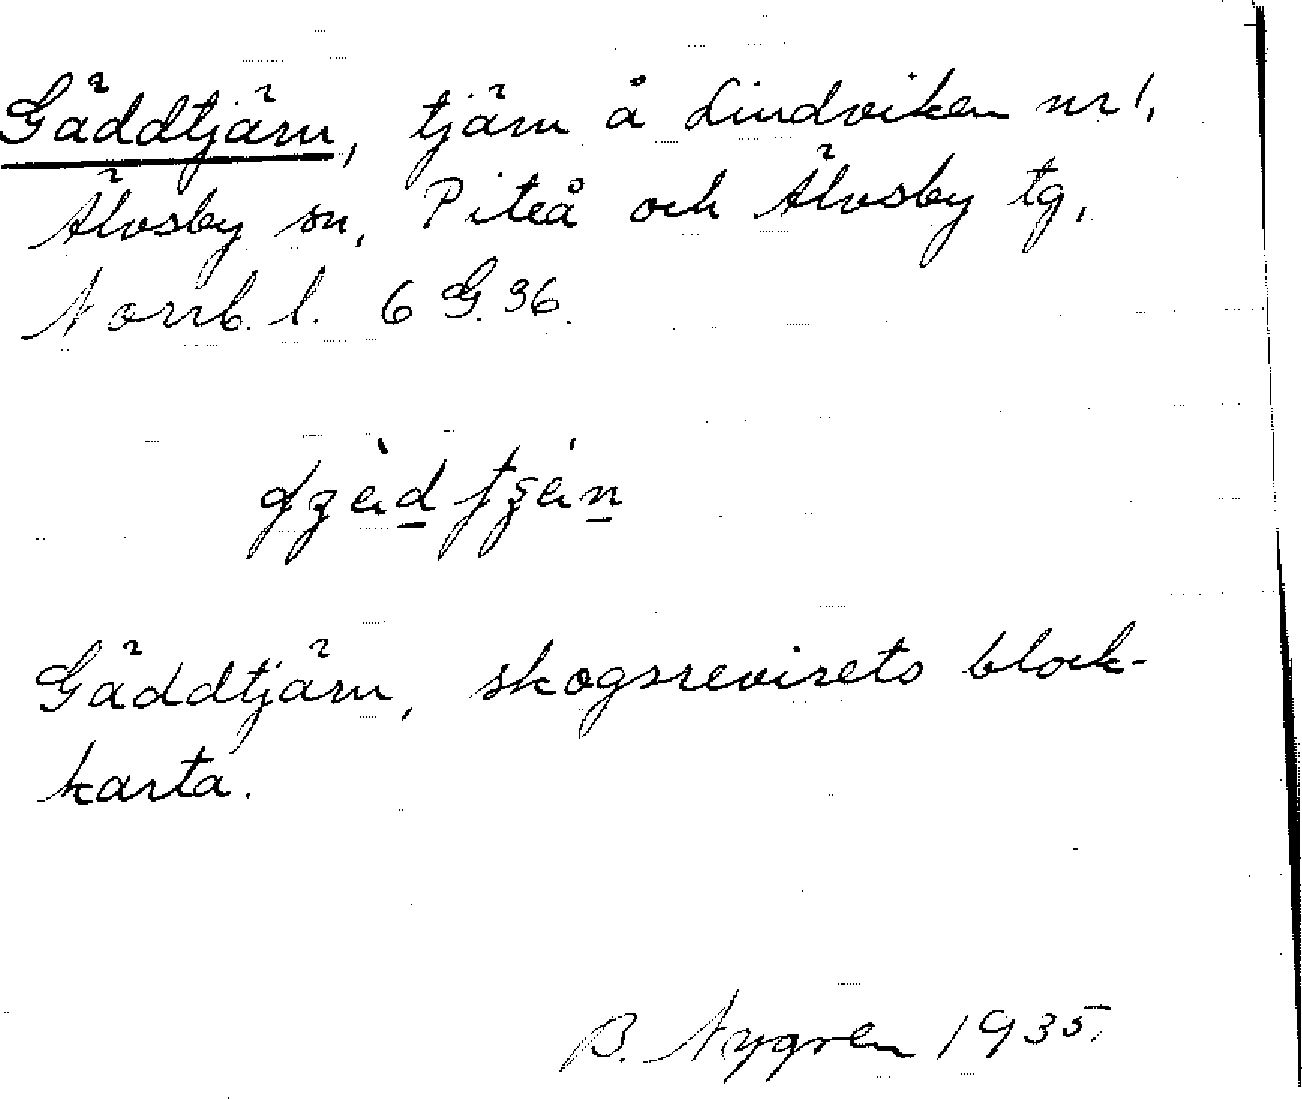 Gäddtjärn, tjärn å Lindviken nr 1,
Älvsby sn, Piteå och Älvsby tg,
Norrb. l. 6 G. 36.
Gäddtjärn, skogsrevirets block-
karta.
B. Nygren 1935.